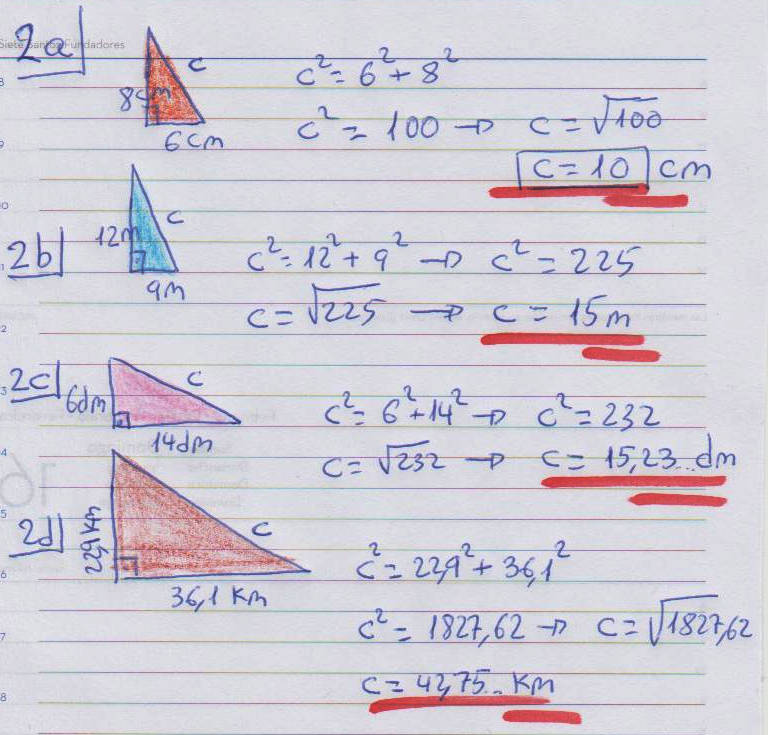 Siete Santos Fundadores
2a
c
8cm
6cm
c² = 6² + 8²
c² = 100 → c = √100
c = 10 cm
2b
12m
c
9m
c² = 12² + 9² → c² = 225
c = √225 → c = 15m
2c
6dm
c
14dm
c² = 6² + 14² → c² = 232
c = √232 → c = 15,23... dm
2d
22,9 Km
c
36,1 Km
c² = 22,9² + 36,1²
c² = 1827,62 → c = √1827,62
c = 42,75... Km